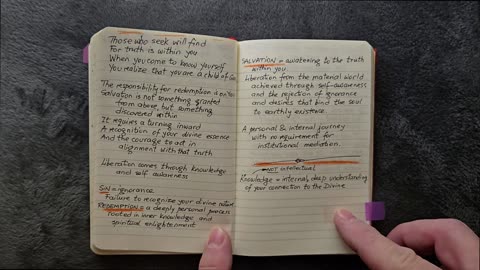 Those who seek will find
For truth is within you
When you come to know yourself
You realize that you are a child of God
The responsibility for redemption is on You
Salvation is not something granted
from above, but something
discovered within
It requires a turning inward
A recognition of your divine essence
And the courage to act in
alignment with that truth
Liberation comes through knowledge
and self awareness
SIN = ignorance
Failure to recognize your divine nature
REDEMPTION = a deeply personal process
rooted in inner knowledge and
spiritual enlightenment
SALVATION = awatening to the truth
within you
Liberation from the material world
achieved through self-awareness
and the rejection of ignorance
and desires that bind the soul
to earthly existence.
A personal & internal journey
with no requirement for
institutional mediation.
NOT intellectual
Knowledge = internal, deep understanding
of your connection to the Divine